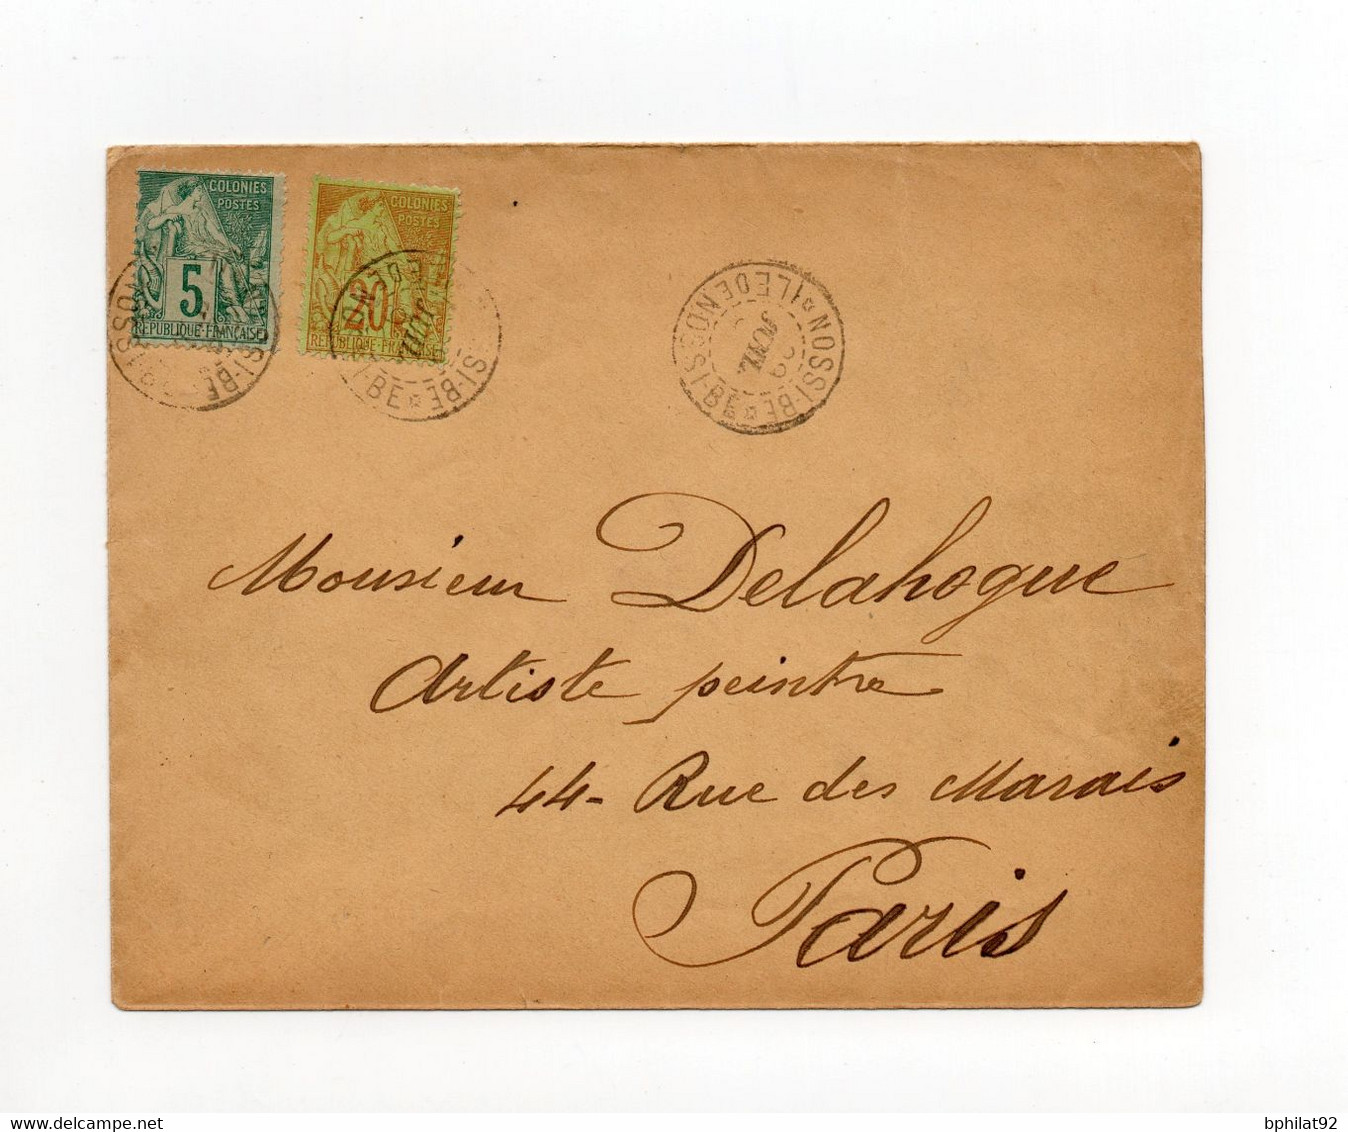 COLONIES
POSTES
5
REPUBLIQUE FRANÇAISE
COLONIES
POSTES
20
REPUBLIQUE FRANÇAISE
NOSSI-BÉ
ILE DE NOSSI-BÉ
JUIL.
Monsieur Delahogue
Artiste peintre
44- Rue des Marais
Paris
bphilat92